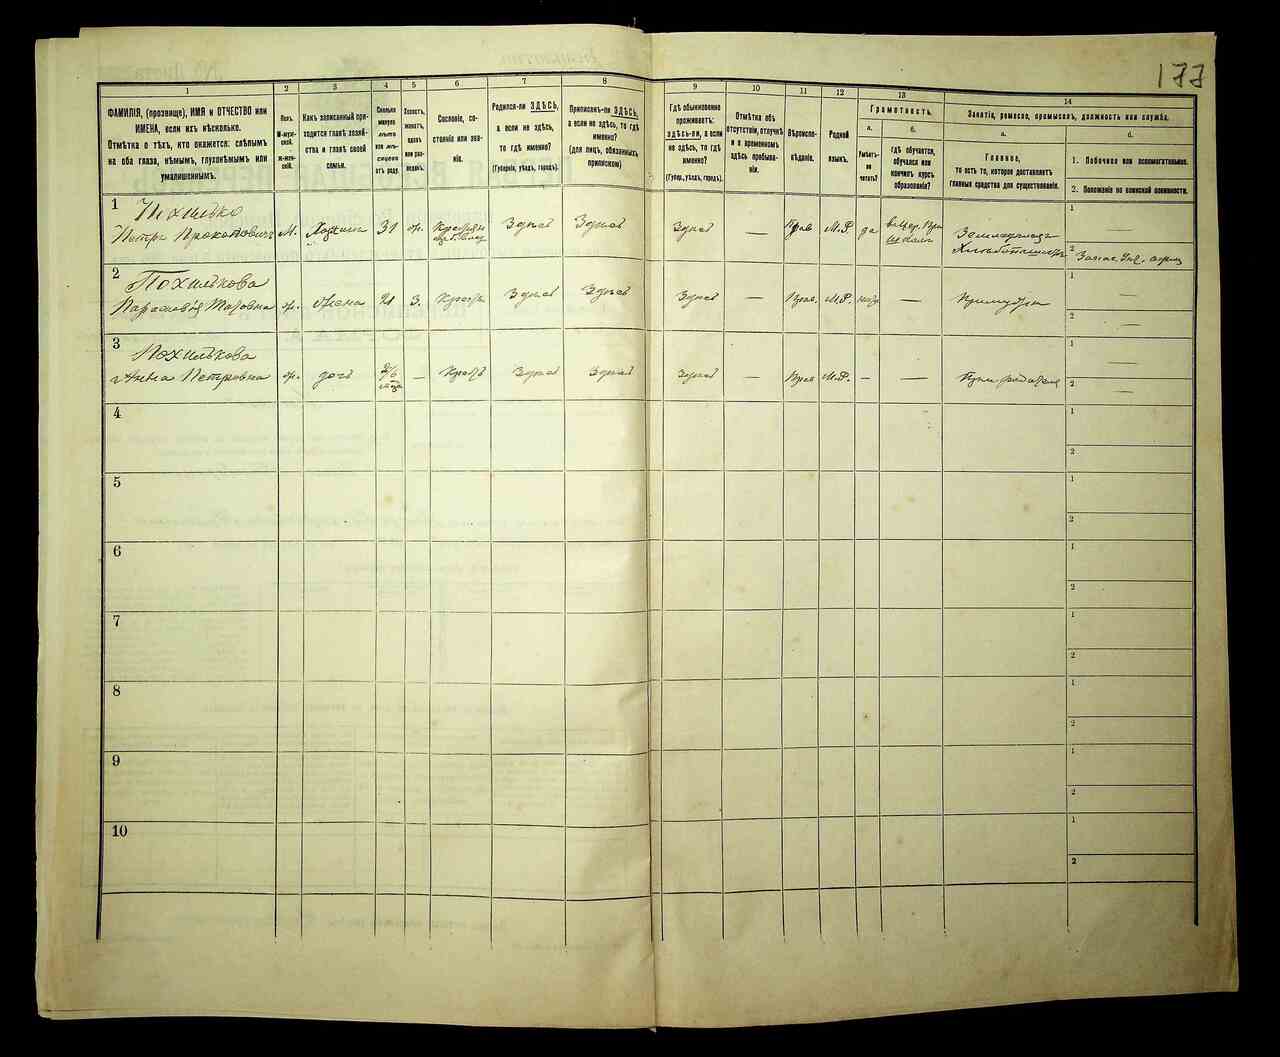 177
1
2
3
4
5
6
7
8
9
10
11
12
13
14
ФАМИЛІЯ, (прозвище), ИМЯ и ОТЧЕСТВО или
ИМЕНА, если ихъ нѣсколько.
Отмѣтка о тѣхъ, кто окажется: слѣпымъ
на оба глаза, нѣмымъ, глухонѣмымъ или
умалишеннымъ.
Полъ.
М-муж-
ской.
Ж-жен-
скій.
Какъ записанный при-
ходится главѣ хозяй-
ства и главѣ своей
семьи.
Сколько
минуло
лѣтъ
или мѣ-
сяцевъ
отъ роду.
Холостъ,
женатъ,
вдовъ
или раз-
веденъ.
Сословіе, со-
стояніе или зва-
ніе.
Родился-ли ЗДѢСЬ,
а если не здѣсь,
то гдѣ именно?
(Губернія, уѣздъ, городъ).
Приписанъ-ли ЗДѢСЬ,
а если не здѣсь, то гдѣ
именно?
(для лицъ, обязанныхъ
припискою)
Гдѣ обыкновенно
проживаетъ:
здѣсь-ли, а если
не здѣсь, то гдѣ
именно?
(Губер., уѣздъ, городъ).
Отмѣтка объ
отсутствіи, отлучкѣ
и о временномъ
здѣсь пребыва-
ніи.
Вѣроиспо-
вѣданіе.
Родной
языкъ.
Грамотность.
а.
б.
Умѣетъ-
ли
читать?
гдѣ обучается,
обучался или
кончилъ курсъ
образованія?
Занятіе, ремесло, промыселъ, должность или служба.
а.
б.
Главное,
то есть то, которое доставляетъ
главныя средства для существованія.
1. Побочное или вспомогательное.
2. Положеніе по воинской повинности.
1 Похилько
Петръ Прокоповичъ М. Хозяинъ 31 ж. Здѣсь Здѣсь Здѣсь — Прав М.Р. да
школѣ
Земледѣлецъ
1 —
2
2 Похилькова
ж. Жена 21 З. Крест Здѣсь Здѣсь Здѣсь — Прав. М.Р. — При мужѣ
1 —
2 —
3 Похилькова
Анна Петровна ж. дочь — Крест Здѣсь Здѣсь Здѣсь — Прав М.Р. — —
1 —
2 —
4
1
2
5
1
2
6
1
2
7
1
2
8
1
2
9
1
2
10
1
2